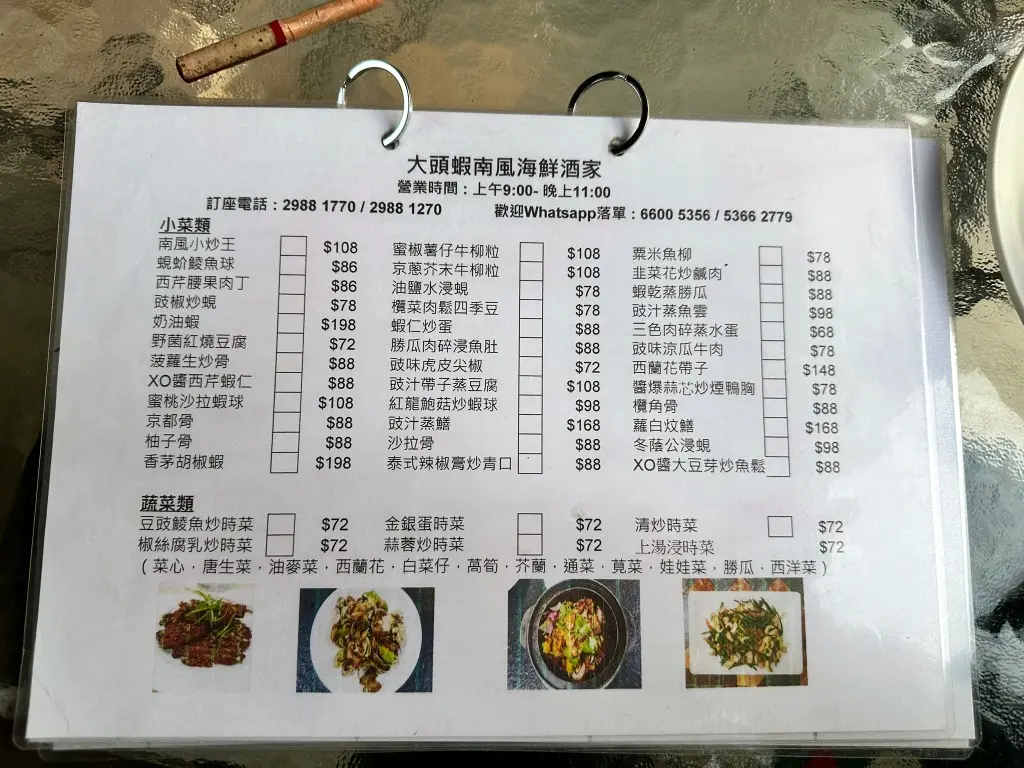 大頭蝦南風海鮮酒家
營業時間：上午9:00- 晚上11:00
訂座電話：2988 1770 / 2988 1270 歡迎Whatsapp落單：6600 5356 / 5366 2779
小菜類
南風小炒王 $108 蜜椒薯仔牛柳粒 $108 粟米魚柳 $78
蜆蚧鯪魚球 $86 京蔥芥末牛柳粒 $108 韭菜花炒鹹肉 $88
西芹腰果肉丁 $86 油鹽水浸蜆 $78 蝦乾蒸勝瓜 $88
豉椒炒蜆 $78 欖菜肉鬆四季豆 $78 豉汁蒸魚雲 $98
奶油蝦 $198 蝦仁炒蛋 $88 三色肉碎蒸水蛋 $68
野菌紅燒豆腐 $72 勝瓜肉碎浸魚肚 $88 豉味涼瓜牛肉 $78
菠蘿生炒骨 $88 豉味虎皮尖椒 $72 西蘭花帶子 $148
XO醬西芹蝦仁 $88 豉汁帶子蒸豆腐 $108 醬爆蒜芯炒煙鴨胸 $78
蜜桃沙拉蝦球 $108 紅龍鮑菇炒蝦球 $98 欖角骨 $88
京都骨 $88 豉汁蒸鱔 $168 蘿白炆鱔 $168
柚子骨 $88 沙拉骨 $88 冬蔭公浸蜆 $98
香茅胡椒蝦 $198 泰式辣椒膏炒青口 $88 XO醬大豆芽炒魚鬆 $88
蔬菜類
豆豉鯪魚炒時菜 $72 金銀蛋時菜 $72 清炒時菜 $72
椒絲腐乳炒時菜 $72 蒜蓉炒時菜 $72 上湯浸時菜 $72
( 菜心﹒唐生菜﹒油麥菜﹒西蘭花﹒白菜仔﹒萵筍﹒芥蘭﹒通菜﹒莧菜﹒娃娃菜﹒勝瓜﹒西洋菜 )